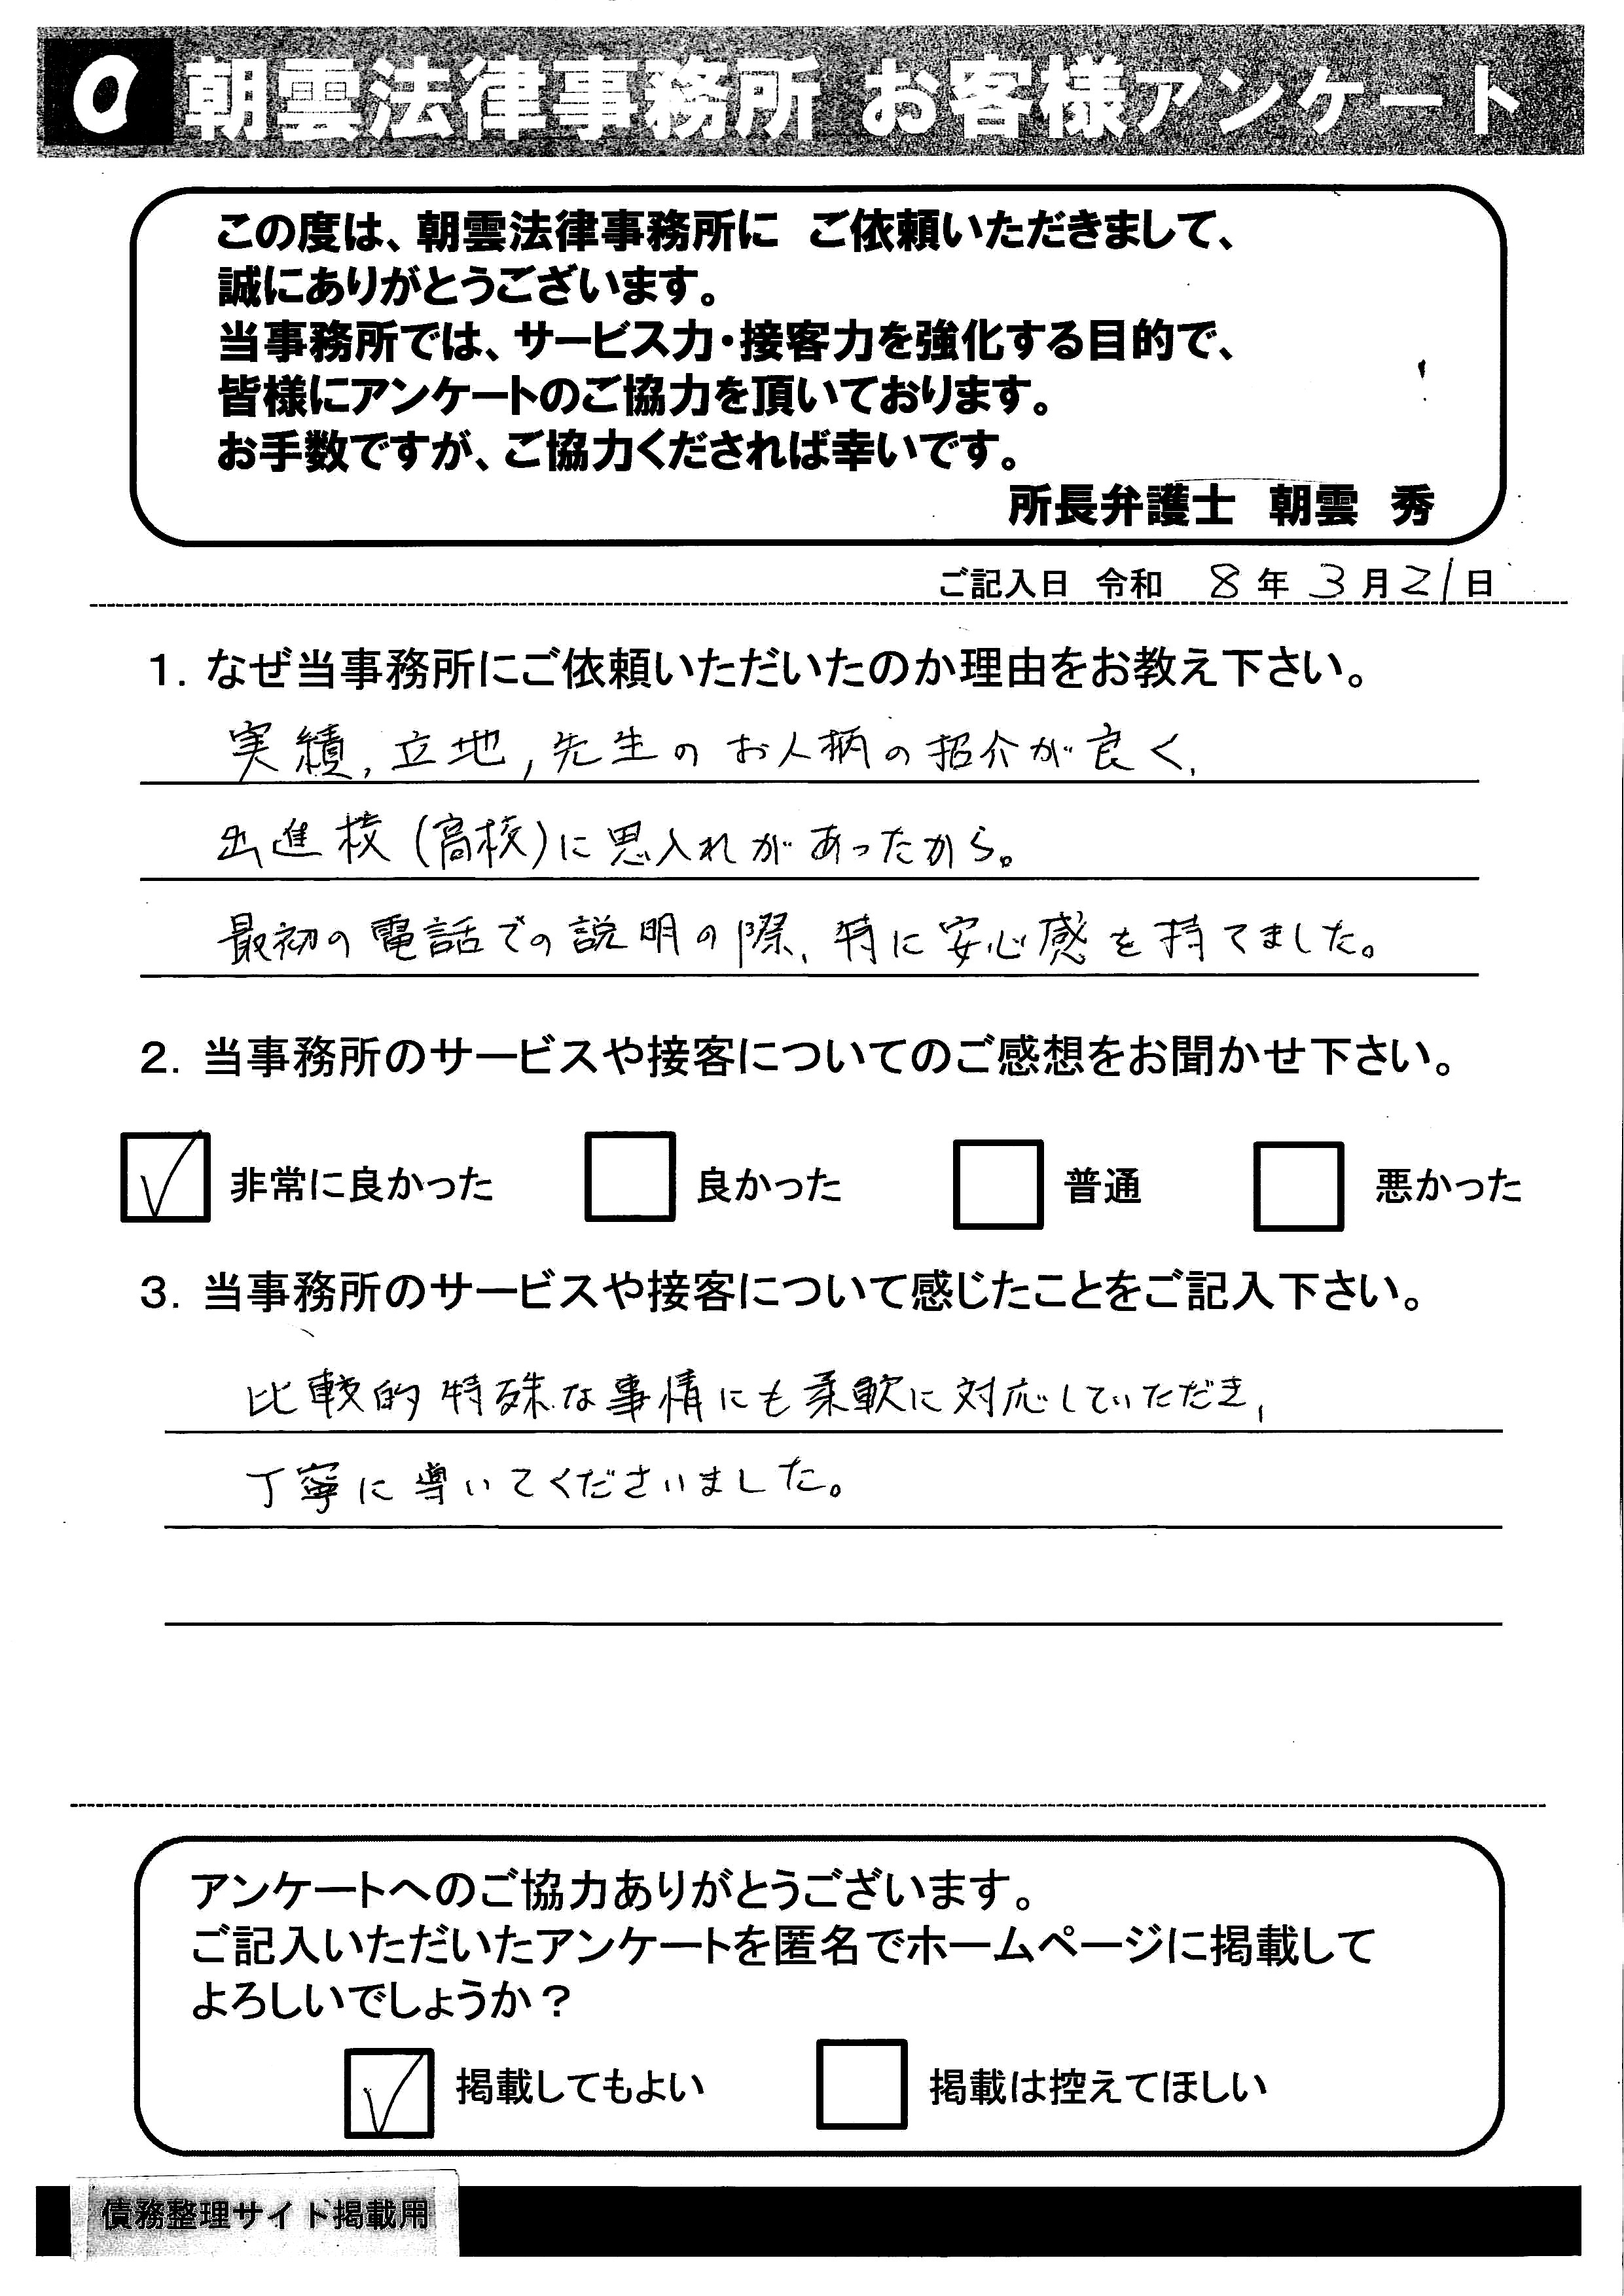 a 朝雲法律事務所 お客様アンケート
この度は、朝雲法律事務所に ご依頼いただきまして、
誠にありがとうございます。
当事務所では、サービス力・接客力を強化する目的で、
皆様にアンケートのご協力を頂いております。
お手数ですが、ご協力くだされば幸いです。
所長弁護士 朝雲 秀
ご記入日 令和 8年 3月21日
1. なぜ当事務所にご依頼いただいたのか理由をお教え下さい。
実績, 立地, 先生のお人柄の紹介が良く、
出進校(高校)に思入れがあったから。
最初の電話での説明の際、特に安心感を持てました。
2. 当事務所のサービスや接客についてのご感想をお聞かせ下さい。
非常に良かった 良かった 普通 悪かった
3. 当事務所のサービスや接客について感じたことをご記入下さい。
比較的特殊な事情にも柔軟に対応していただき,
丁寧に導いてくださいました。
アンケートへのご協力ありがとうございます。
ご記入いただいたアンケートを匿名でホームページに掲載して
よろしいでしょうか？
掲載してもよい 掲載は控えてほしい
債務整理サイト掲載用